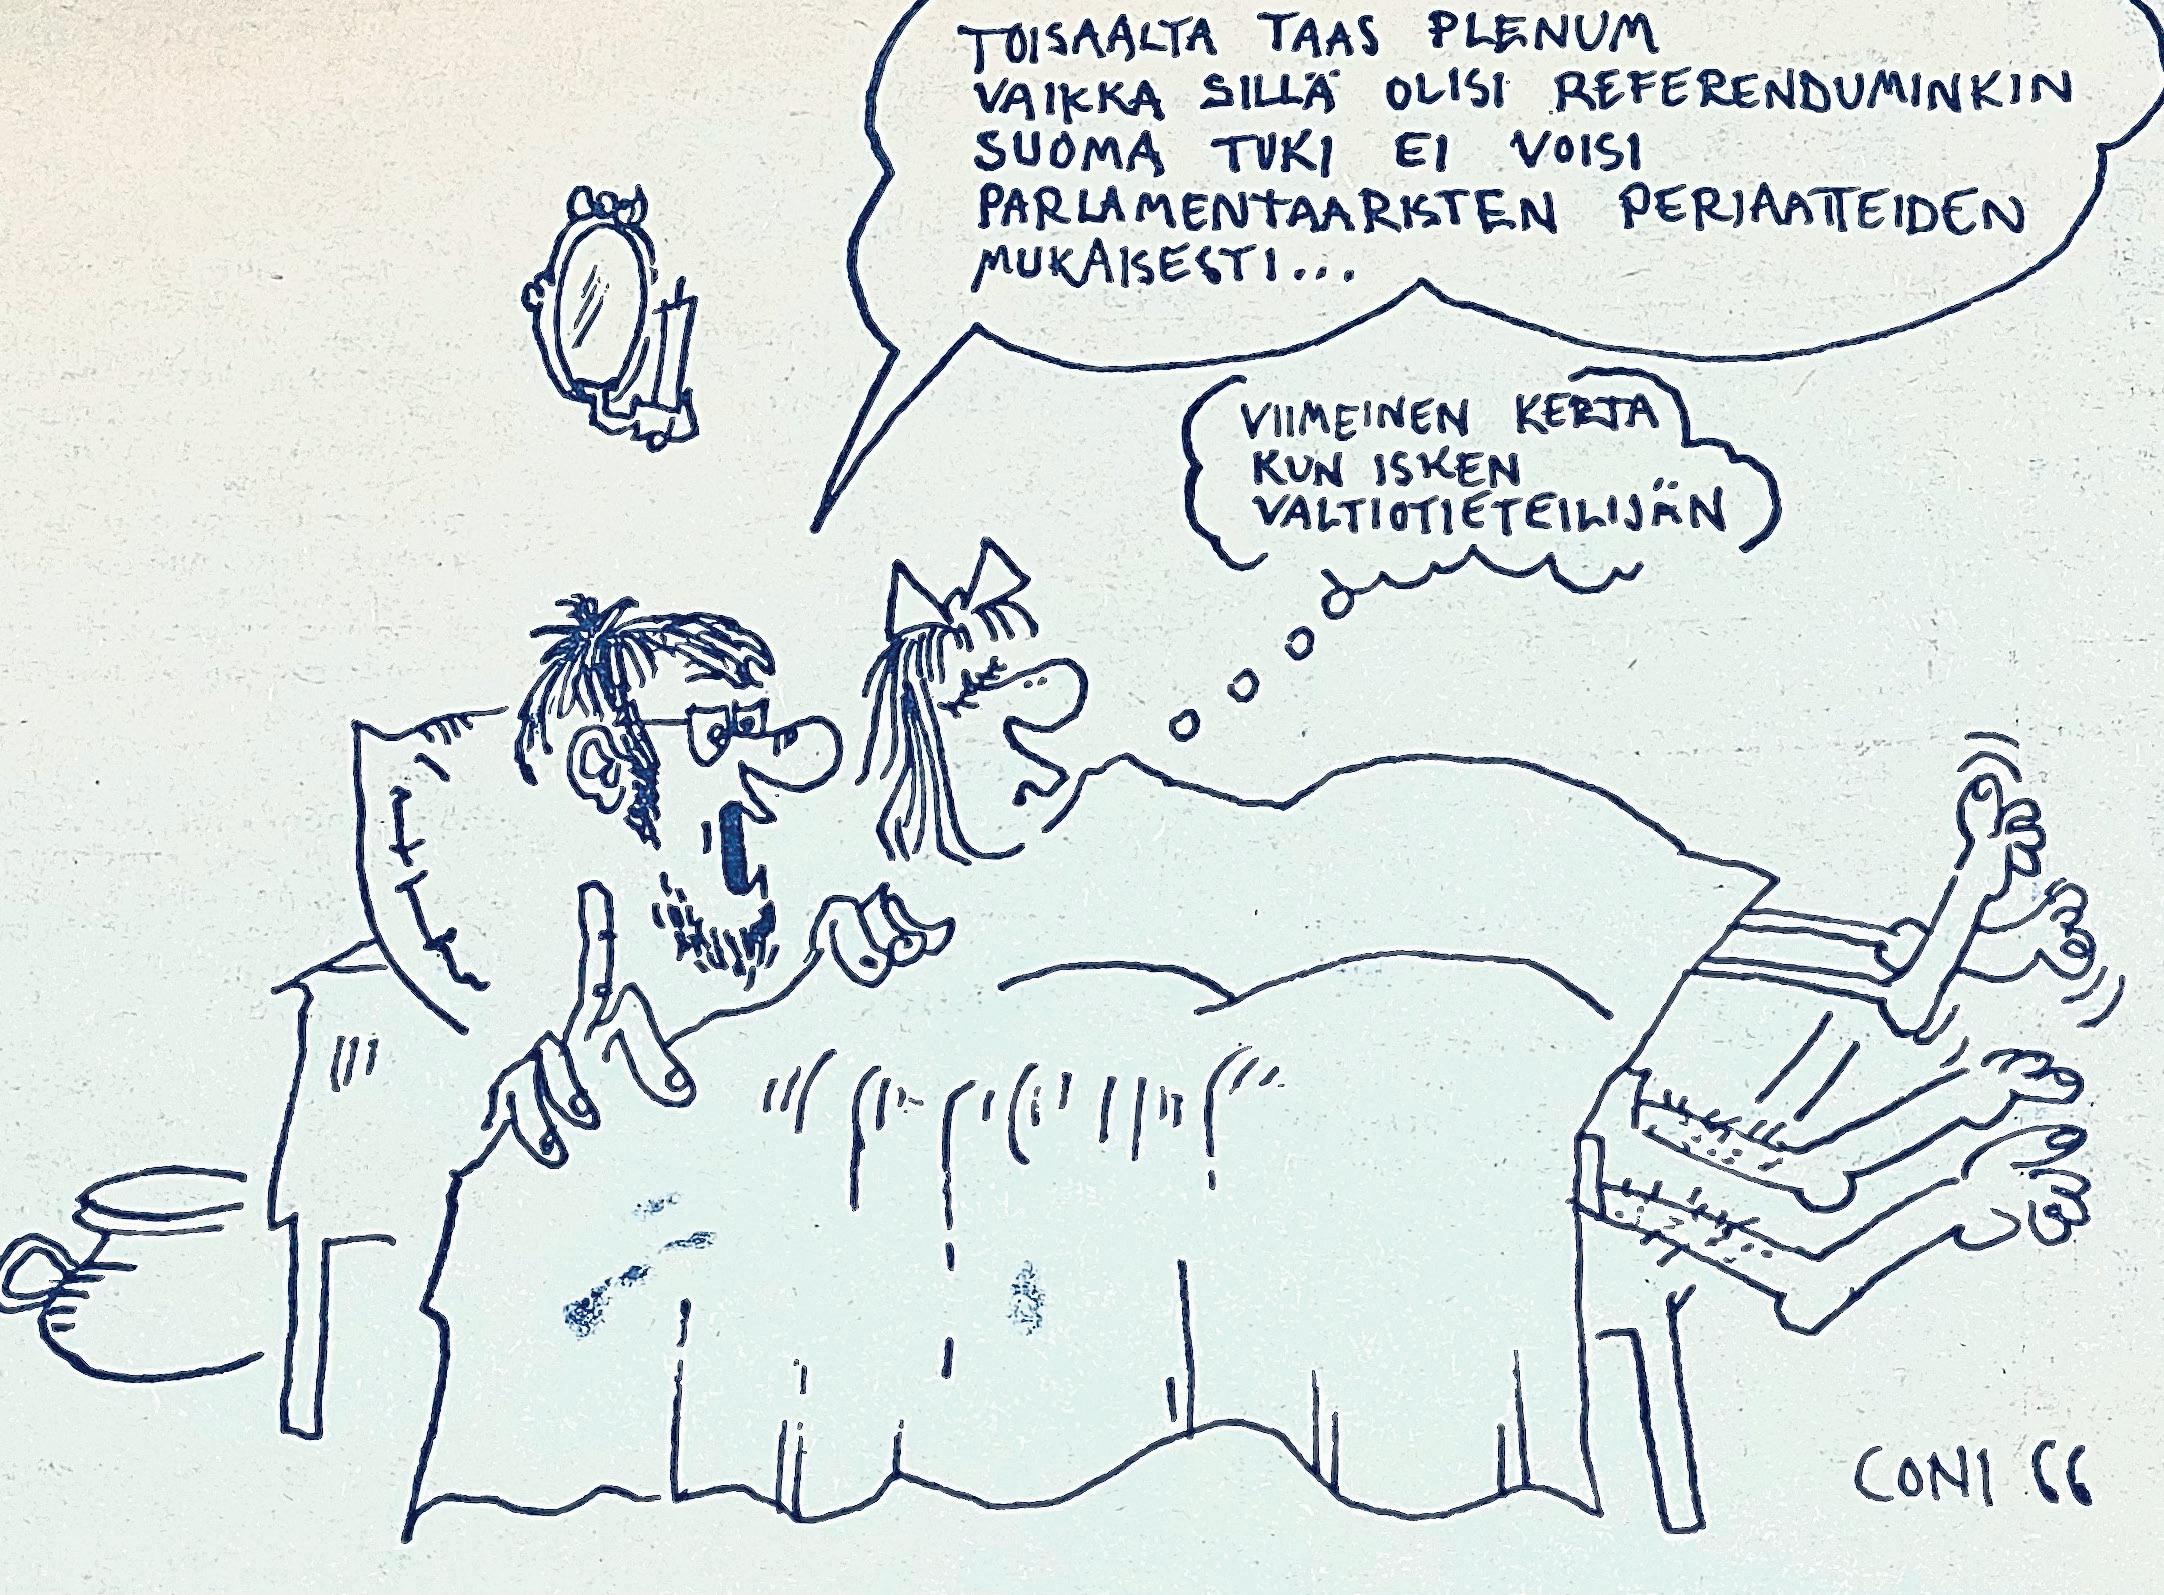 TOISAALTA TAAS PLENUM
VAIKKA SILLÄ OLISI REFERENDUMINKIN
SUOMA TUKI EI VOISI
PARLAMENTAARISTEN PERIAATTEIDEN
MUKAISESTI...
VIIMEINEN KERTA
KUN ISKEN
VALTIOTIETEILIJÄN
CONI 66